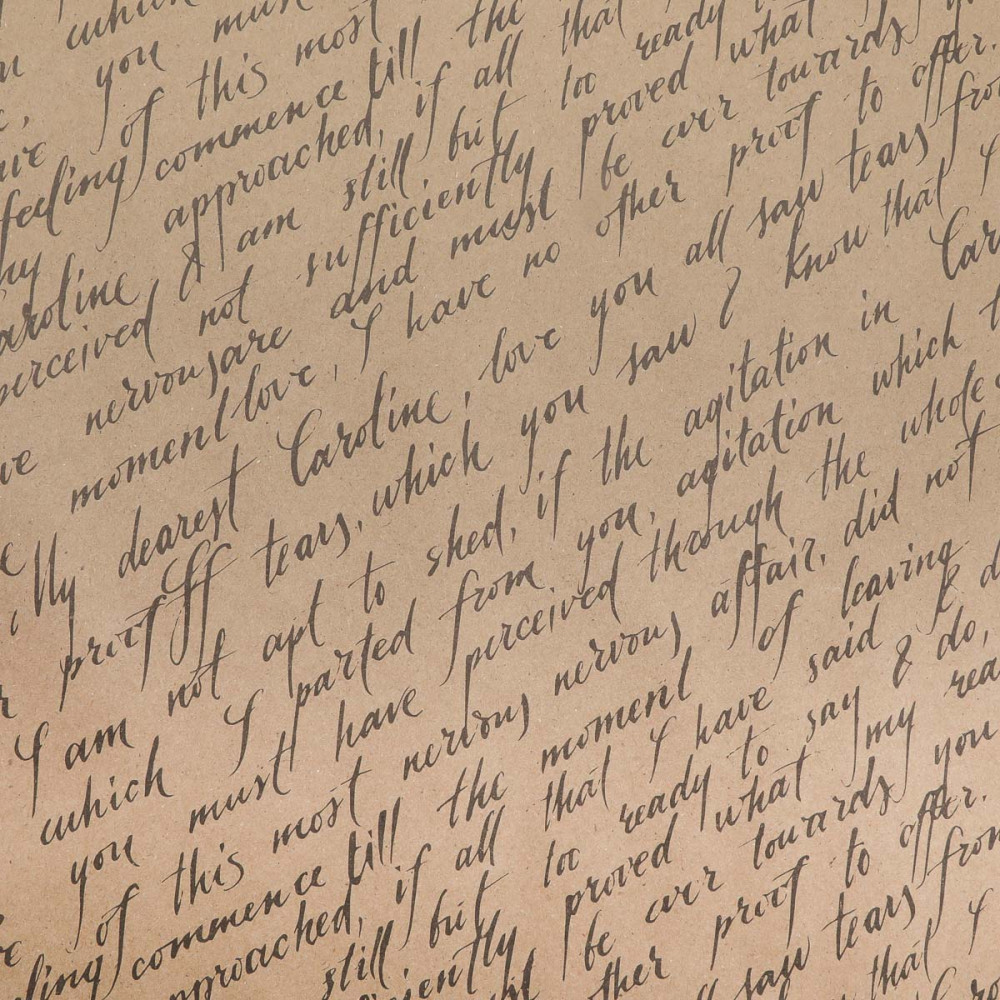 which
you must
of this most the that
feeling commence till all too ready
approached, if all
aroline & I am still but too ready
perceived not sufficiently proved what
ve nervous are and must be ever towards
moment love, I have no other proof to offer.
My dearest Caroline, love you all saw tears fro
proof off tears, which you saw & know that I
I am not apt to shed, if the agitation in Car
which I parted from you, agitation which t
you must have perceived through the whole
of this most nervous nervous affair, did not
ling commence till the moment of leaving
pproached, if all that I have said & d
still but too ready to say & do,
iently proved what my rea
be ever towards you
ther proof to offer.
saw tears from
that I